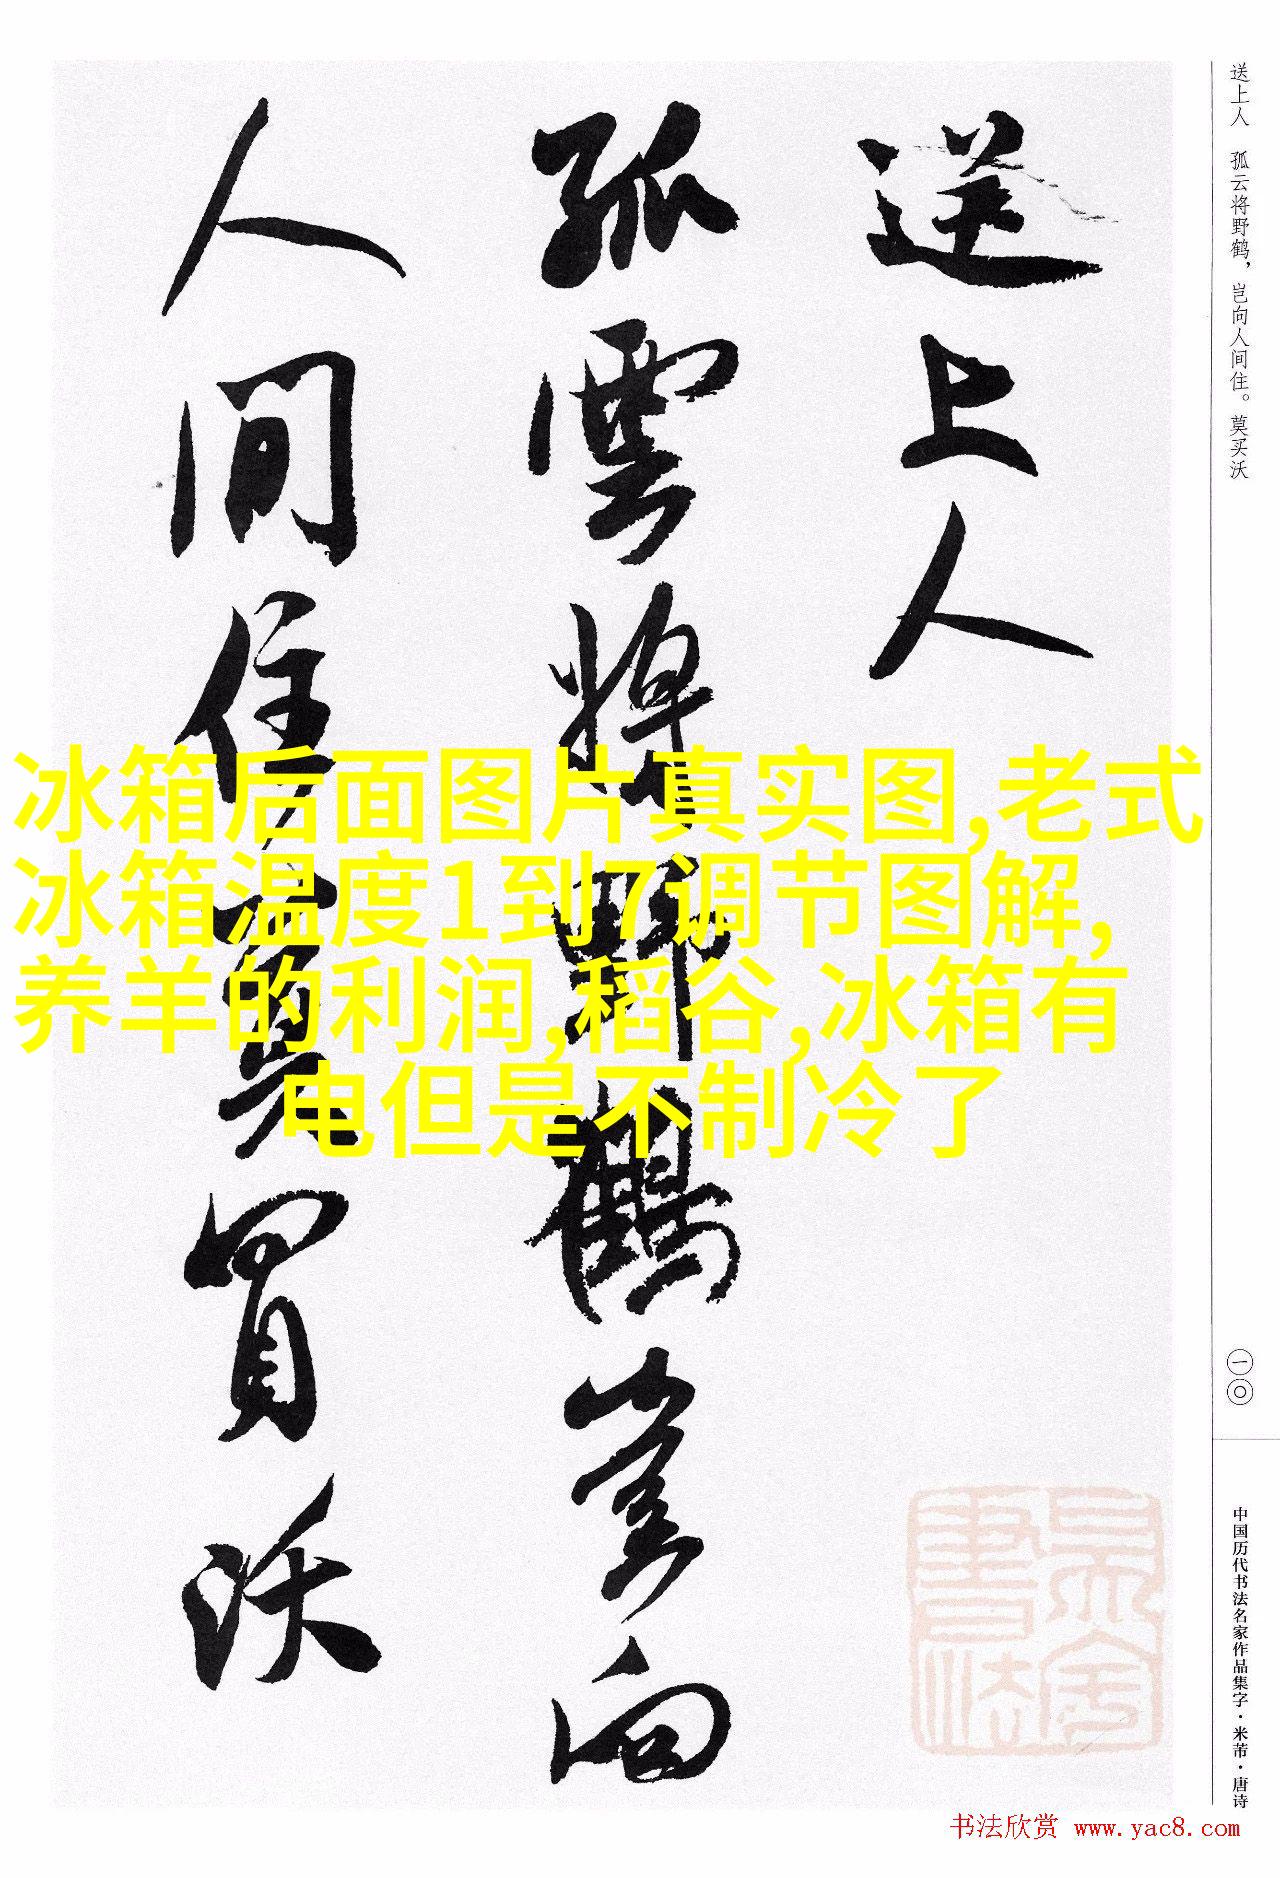 送上人　孤云将野鹤，岂向人间住。莫买沃
送上人
孤雲將野鶴豈向
人间住莫買沃
冰箱后面图片真实图,老式
冰箱温度1到7调节图解,
养羊的利润,稻谷,冰箱有
电但是不制冷了
一〇
中国历代书法名家作品集字·米芾·唐诗
书法欣赏 www.yac8.com